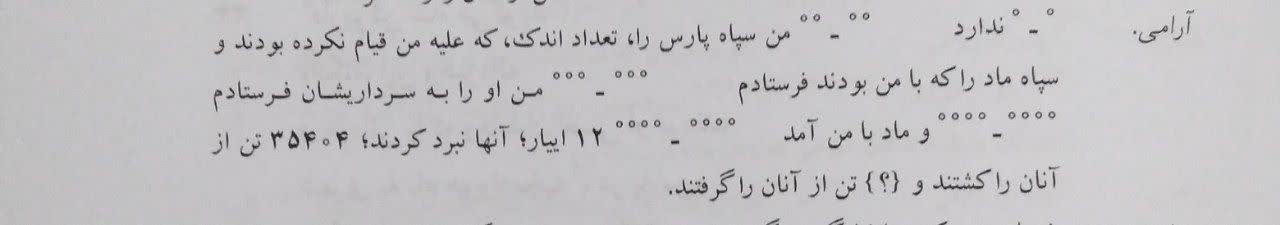 آرامی. °ـ° ندارد °°ـ°° من سپاه پارس را، تعداد اندک، که علیه من قیام نکرده بودند و
سپاه ماد را که با من بودند فرستادم °°°ـ°°° من او را به سرداریشان فرستادم
°°°°ـ°°°° و ماد با من آمد °°°°ـ°°°° ۱۲ اییار؛ آنها نبرد کردند؛ ۳۵۴۰۴ تن از
آنان را کشتند و {؟} تن از آنان را گرفتند.